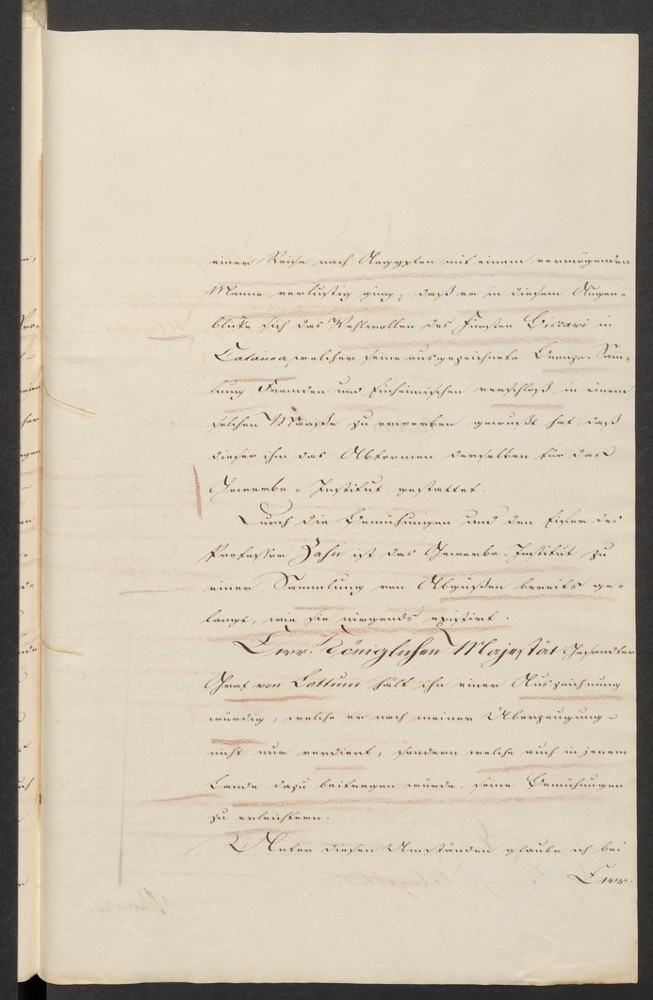 einer Reise nach Aegypten mit einem vermögenden
Manne verlustig ging, daß er in diesem Augen-
blicke sich das Wohlwollen des Fürsten Biscari in
Catanea, welcher seine ausgezeichnete Bronze-Sam-
lung Fremden und Einheimischen verschloß, in einem
solchen Maaße zu erwerben gewußt hat, daß
dieser ihm das Abformen derselben für das
Gewerbe-Institut gestattet.
Durch die Bemühungen und den Eifer des
Professor Zahn ist das Gewerbe-Institut zu
einer Sammlung von Abgüßen bereits ge-
langt, wie sie nirgends existirt.
Ewr. Königlichen Majestät Gesandter
Graf von Lottum hält ihn einer Auszeichnung
würdig, welche er nach meiner Überzeugung
nicht nur verdient, sondern welche auch in jenem
Lande dazu beitragen würde, seine Bemühungen
zu erleichtern.
Unter diesen Umständen glaube ich bei
Ewr.